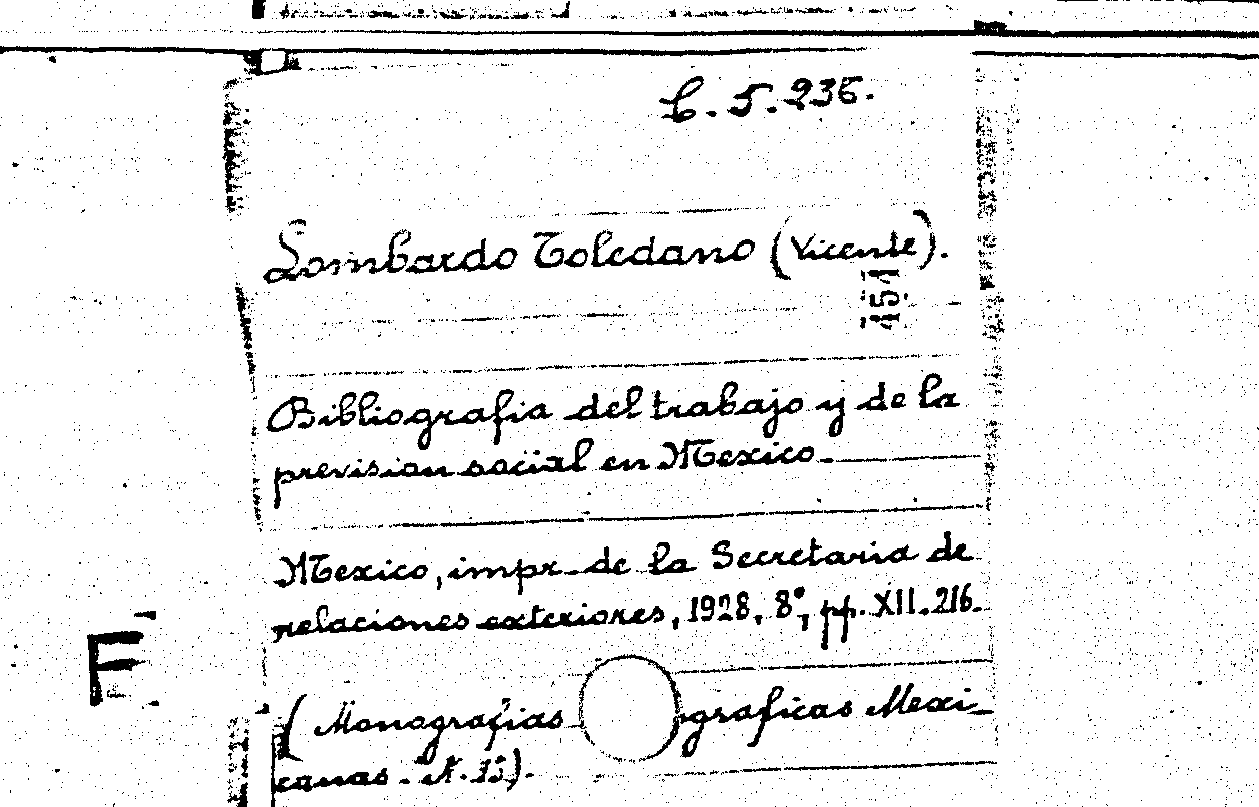 C. 5. 236.
Lombardo Toledano (Vicente).
451
Bibliografia del trabajo y de la
prevision social en Mexico.
Mexico, impr. de la Secretaria de
relaciones exteriores, 1928, 8°, pp. XII-216.
F
(Monografias graficas Mexi-
canas. N.